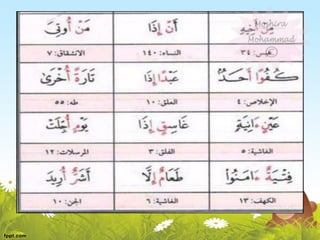 مِنْ أَخِيهِ أَنْ إِذَا مَنْ أُوتِيَ
عبس: ٣٤ النساء: ١٤٠ الانشقاق: ٧
كُفُوًا أَحَدٌ عَبْدًا إِذَا تَارَةً أُخْرَىٰ
الإخلاص: ٤ العلق: ١٠ طه: ٥٥
عَيْنٍ ءَانِيَةٍ غَاسِقٍ إِذَا يَوْمٍ أُجِّلَتْ
الغاشية: ٥ الفلق: ٣ المرسلات: ١٢
فِتْيَةٌ ءَامَنُوا طَعَامٌ إِلَّا أَشَرٌّ أُرِيدَ
الكهف: ١٣ الغاشية: ٦ الجن: ١٠
Moshira
Mohammad
©
fppt.com